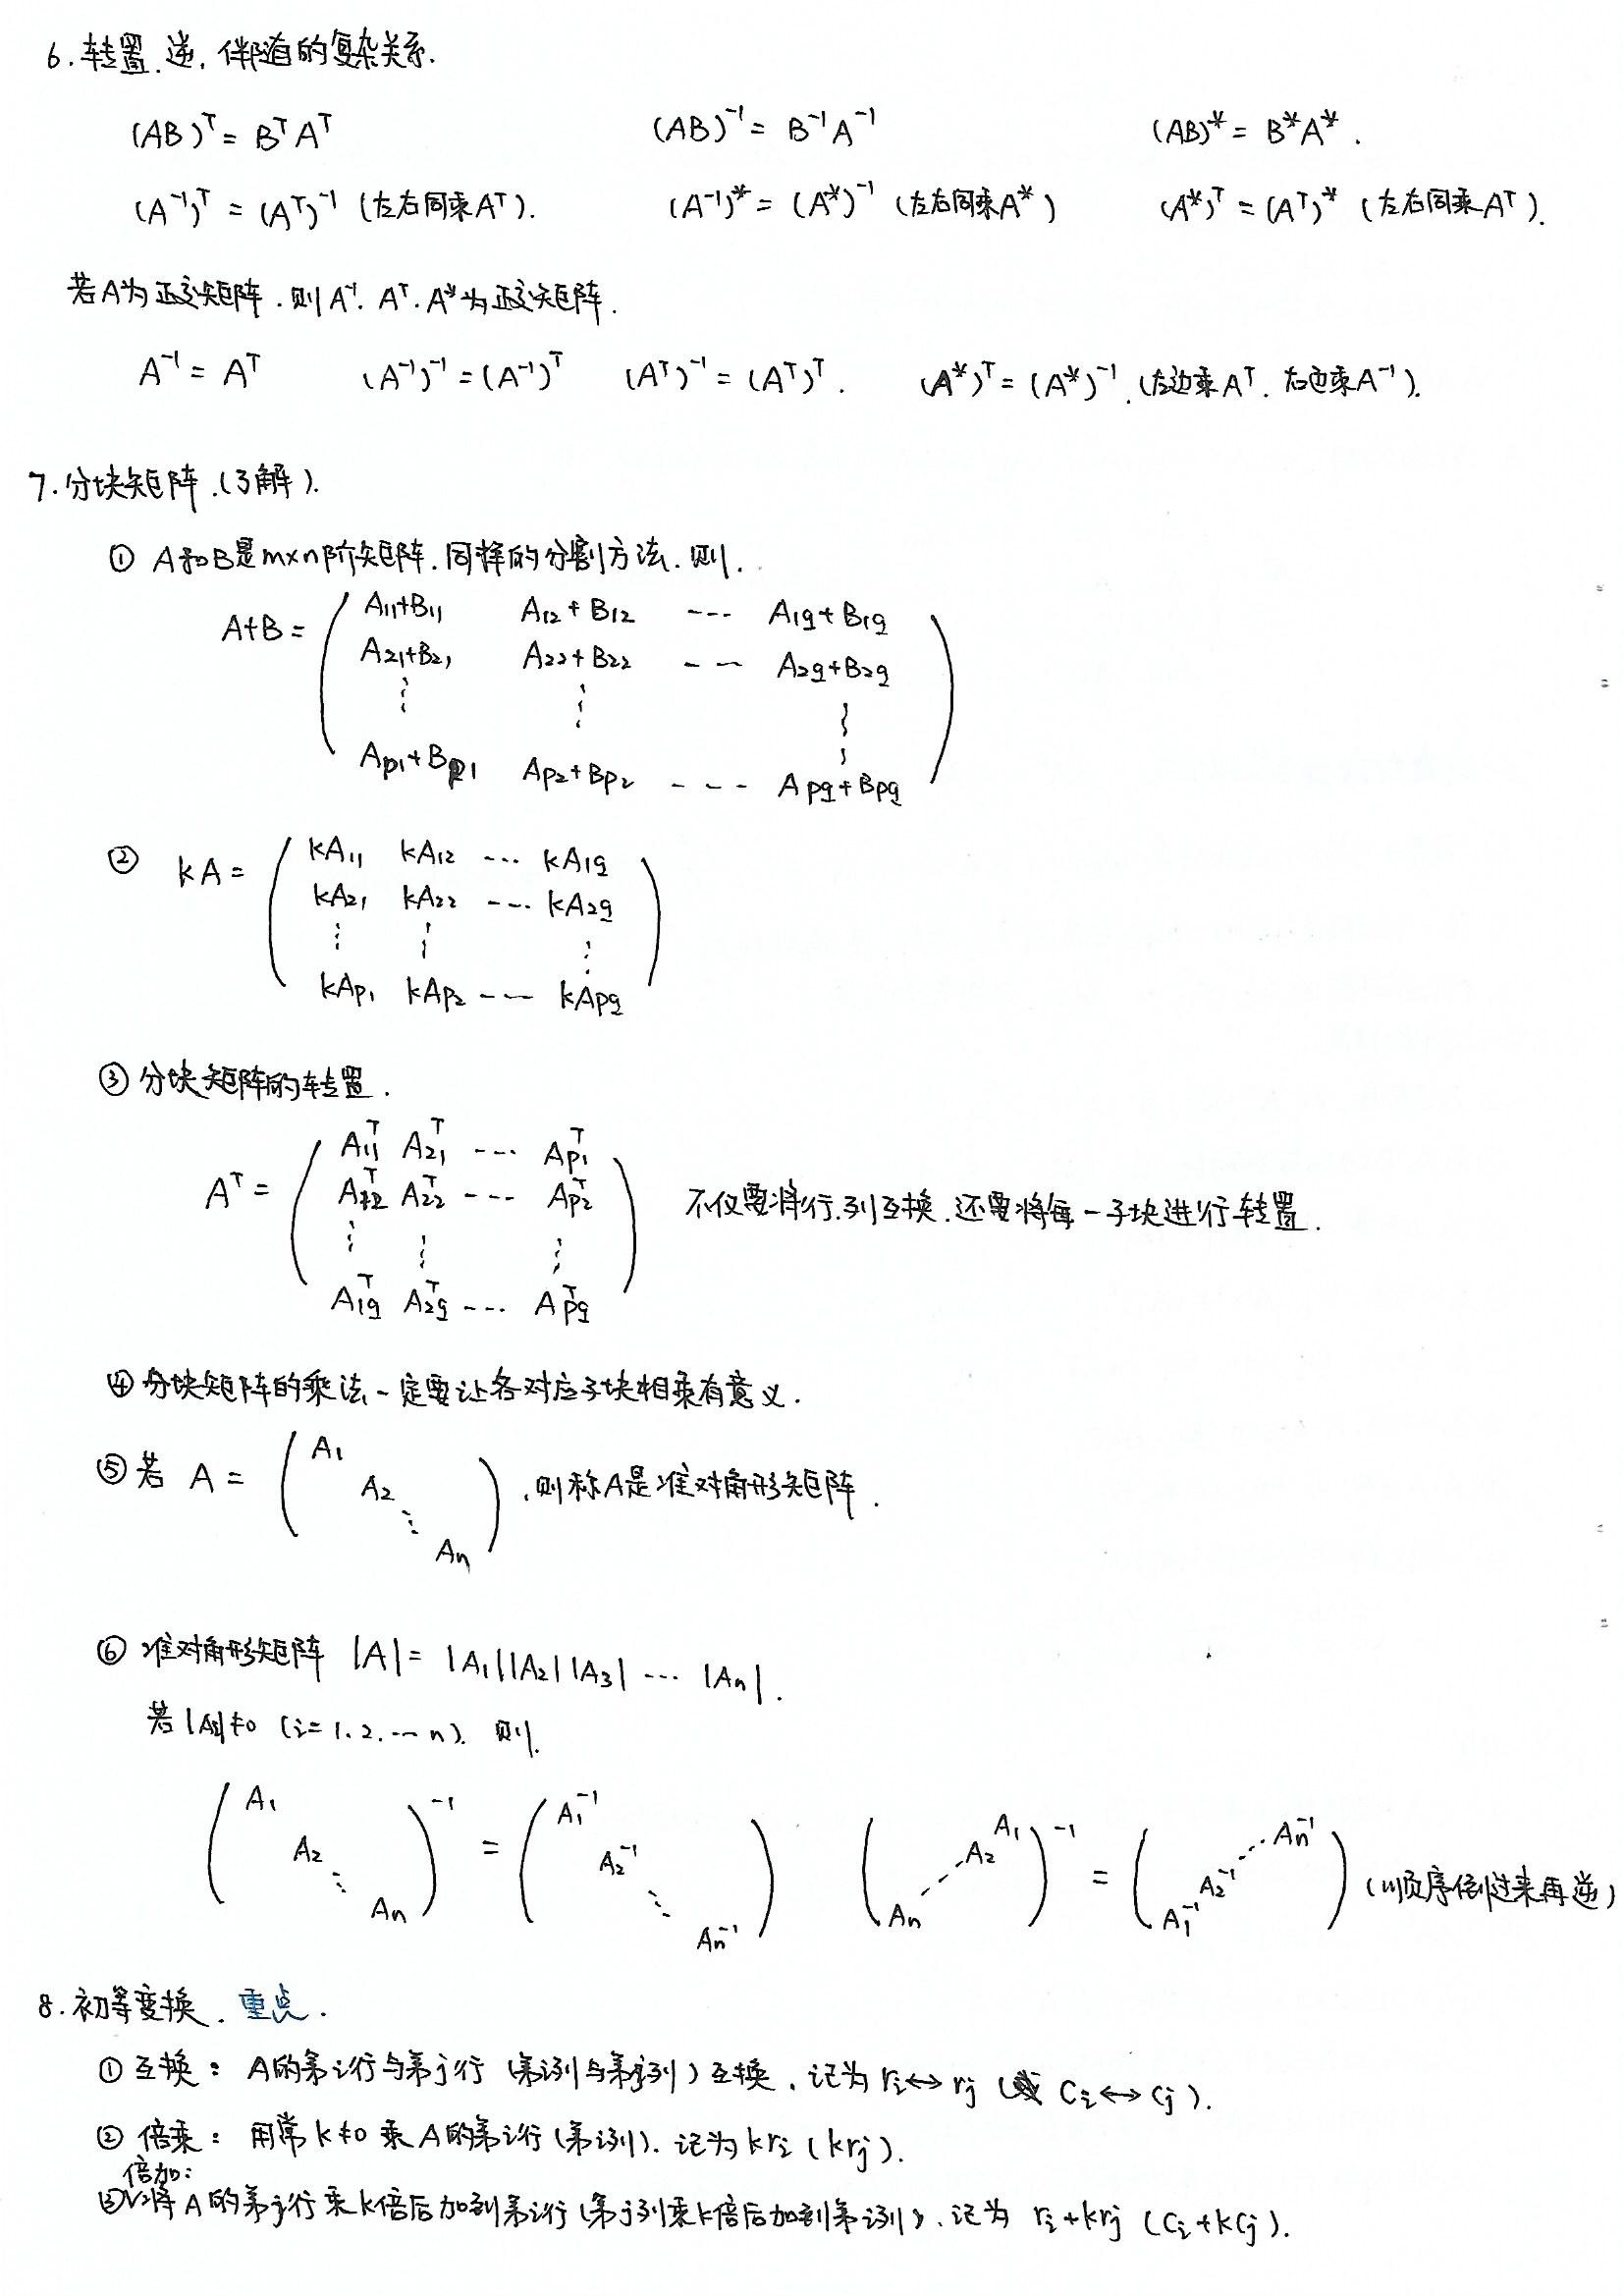 6. 转置. 逆. 伴随的复杂关系.
(AB)ᵀ = BᵀAᵀ (AB)⁻¹ = B⁻¹A⁻¹ (AB)* = B*A*.
(A⁻¹)ᵀ = (Aᵀ)⁻¹ (左右同乘Aᵀ). (A⁻¹)* = (A*)⁻¹ (左右同乘A*) (A*)ᵀ = (Aᵀ)* (左右同乘Aᵀ).
若A为正交矩阵. 则A⁻¹. Aᵀ. A*为正交矩阵.
A⁻¹ = Aᵀ (A⁻¹)⁻¹ = (A⁻¹)ᵀ (Aᵀ)⁻¹ = (Aᵀ)ᵀ. (A*)ᵀ = (A*)⁻¹. (左边乘Aᵀ. 右边乘A⁻¹).
7. 分块矩阵. (了解).
① A和B是m×n阶矩阵. 同样的分割方法. 则.
A+B = ( A₁₁+B₁₁ A₁₂+B₁₂ --- A₁q+B₁q
A₂₁+B₂₁ A₂₂+B₂₂ --- A₂q+B₂q
⋮ ⋮ ⋮
Ap₁+Bp₁ Ap₂+Bp₂ --- Apq+Bpq )
② kA = ( kA₁₁ kA₁₂ --- kA₁q
kA₂₁ kA₂₂ --- kA₂q
⋮ ⋮ ⋮
kAp₁ kAp₂ --- kApq )
③ 分块矩阵的转置.
Aᵀ = ( A₁₁ᵀ A₂₁ᵀ --- Ap₁ᵀ
A₁₂ᵀ A₂₂ᵀ --- Ap₂ᵀ 不仅要将行.列互换. 还要将每一子块进行转置.
⋮ ⋮ ⋮
A₁qᵀ A₂qᵀ --- Apqᵀ )
④ 分块矩阵的乘法一定要让各对应子块相乘有意义.
⑤ 若 A = ( A₁ A₂ ⋱ An ) .则称A是准对角形矩阵.
⑥ 准对角形矩阵 |A| = |A₁||A₂||A₃| --- |An|.
若|Ai|≠0 (i=1.2.---n). 则.
( A₁ A₂ ⋱ An )⁻¹ = ( A₁⁻¹ A₂⁻¹ ⋱ An⁻¹ ) ( A₁ A₂ ⋰ An )⁻¹ = ( An⁻¹ ⋰ A₂⁻¹ A₁⁻¹ ) (顺序倒过来再逆)
8. 初等变换. 重点.
① 互换: A的第i行与第j行 (第i列与第j列) 互换. 记为 ri↔rj (或 Ci↔Cj).
② 倍乘: 用常k≠0 乘A的第i行(第i列). 记为kri (krj).
倍加:
③∨将A的第j行乘k倍后加到第i行(第j列乘k倍后加到第i列). 记为 ri+krj (Ci+kCj).